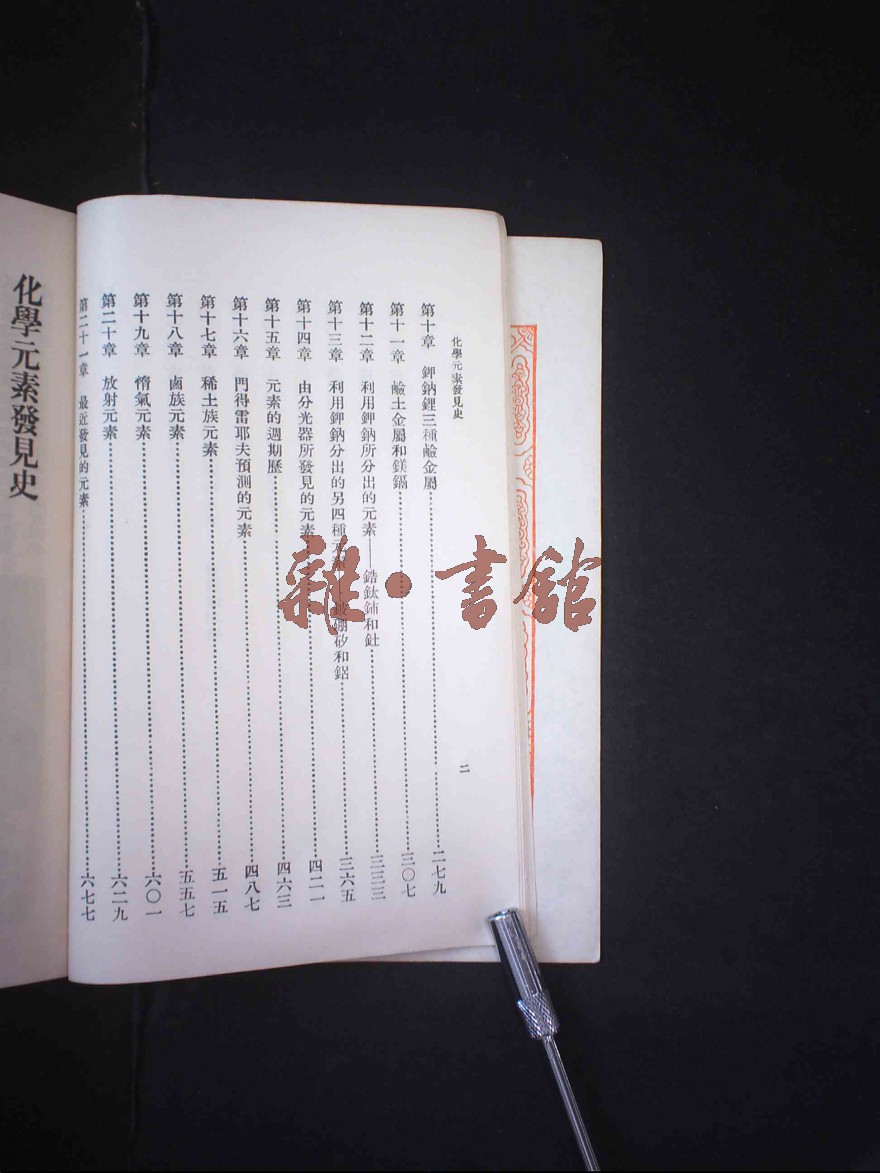 化學元素發見史
二
第十章 鉀鈉鋰三種鹼金屬 二七九
第十一章 鹼土金屬和鎂鎘 三〇七
第十二章 利用鉀鈉所分出的元素——鋯鈦鈰和釷 三三三
第十三章 利用鉀鈉分出的另四種元 硼矽和鋁 三六五
第十四章 由分光器所發見的元素 四二一
第十五章 元素的週期歷 四六三
第十六章 門得雷耶夫預測的元素 四八七
第十七章 稀土族元素 五一五
第十八章 鹵族元素 五五七
第十九章 惰氣元素 六〇一
第二十章 放射元素 六二九
第二十一章 最近發見的元素 六七七
化學元素發見史
雜·書館